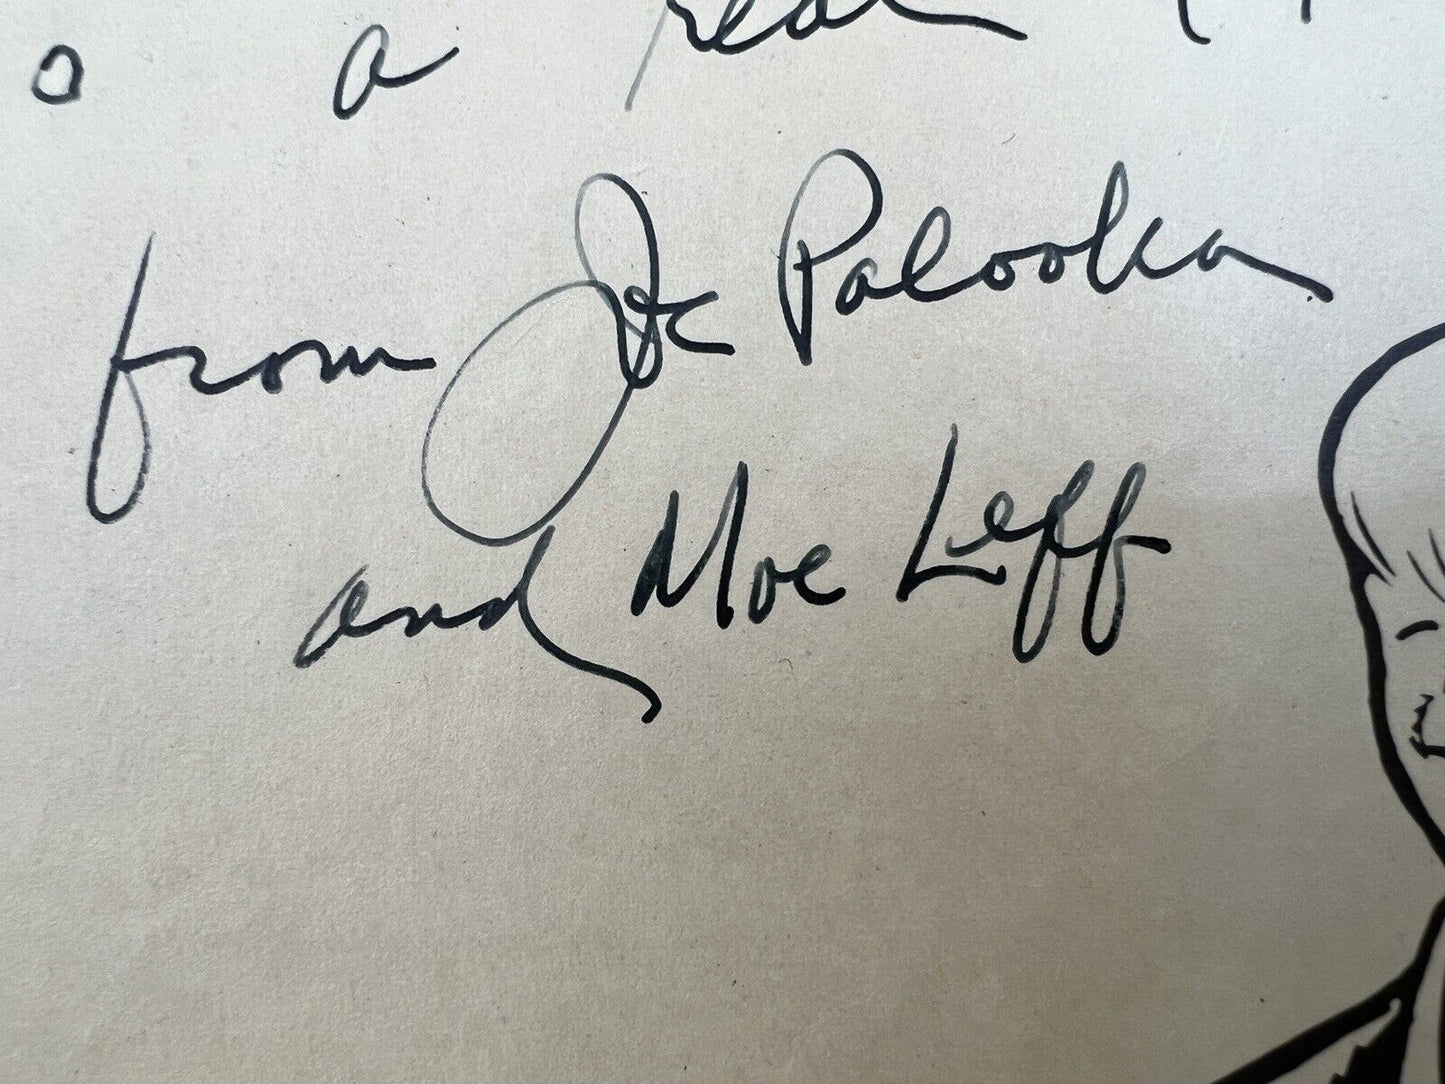 o a real
from Joe Palooka
and Moe Leff